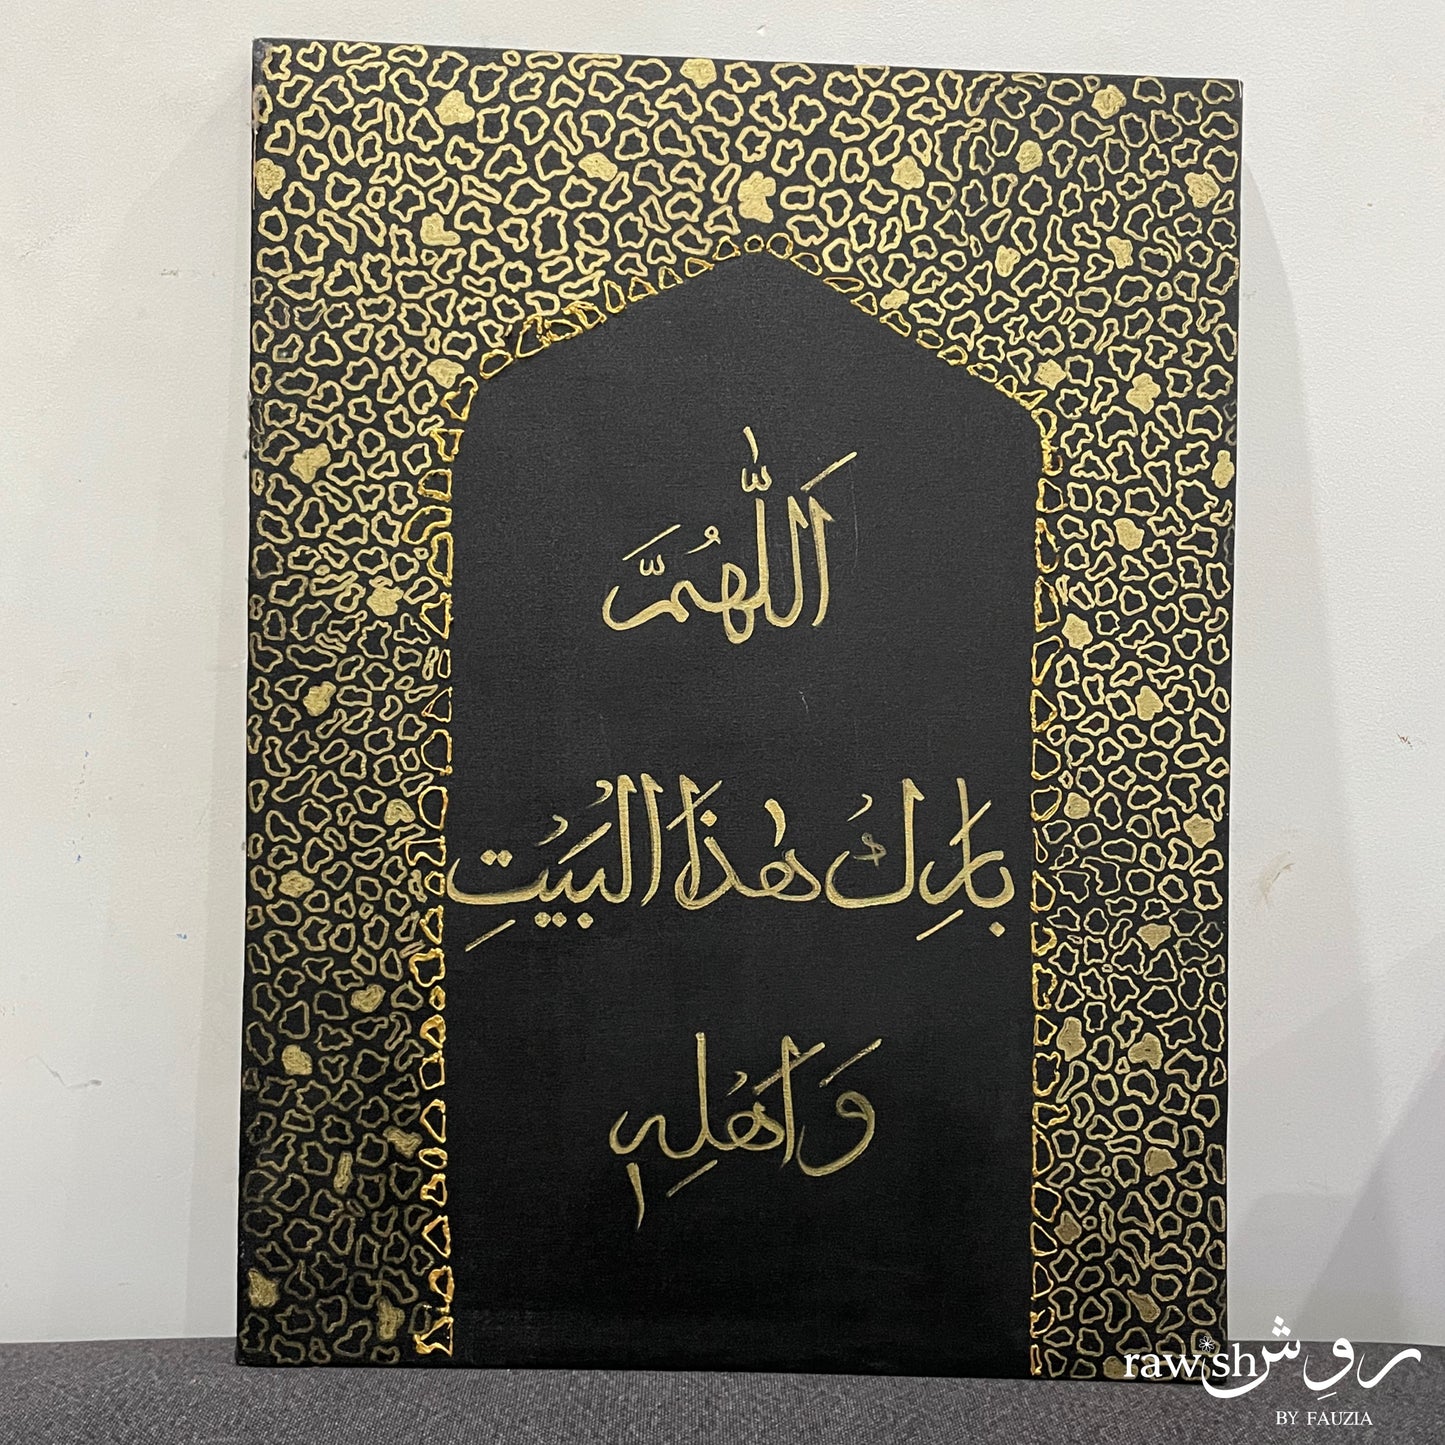 اَللّٰهُمَّ
بَارِكْ هٰذَا الْبَيْتِ
وَاَهْلِهٖ
raw*sh روِش
BY FAUZIA